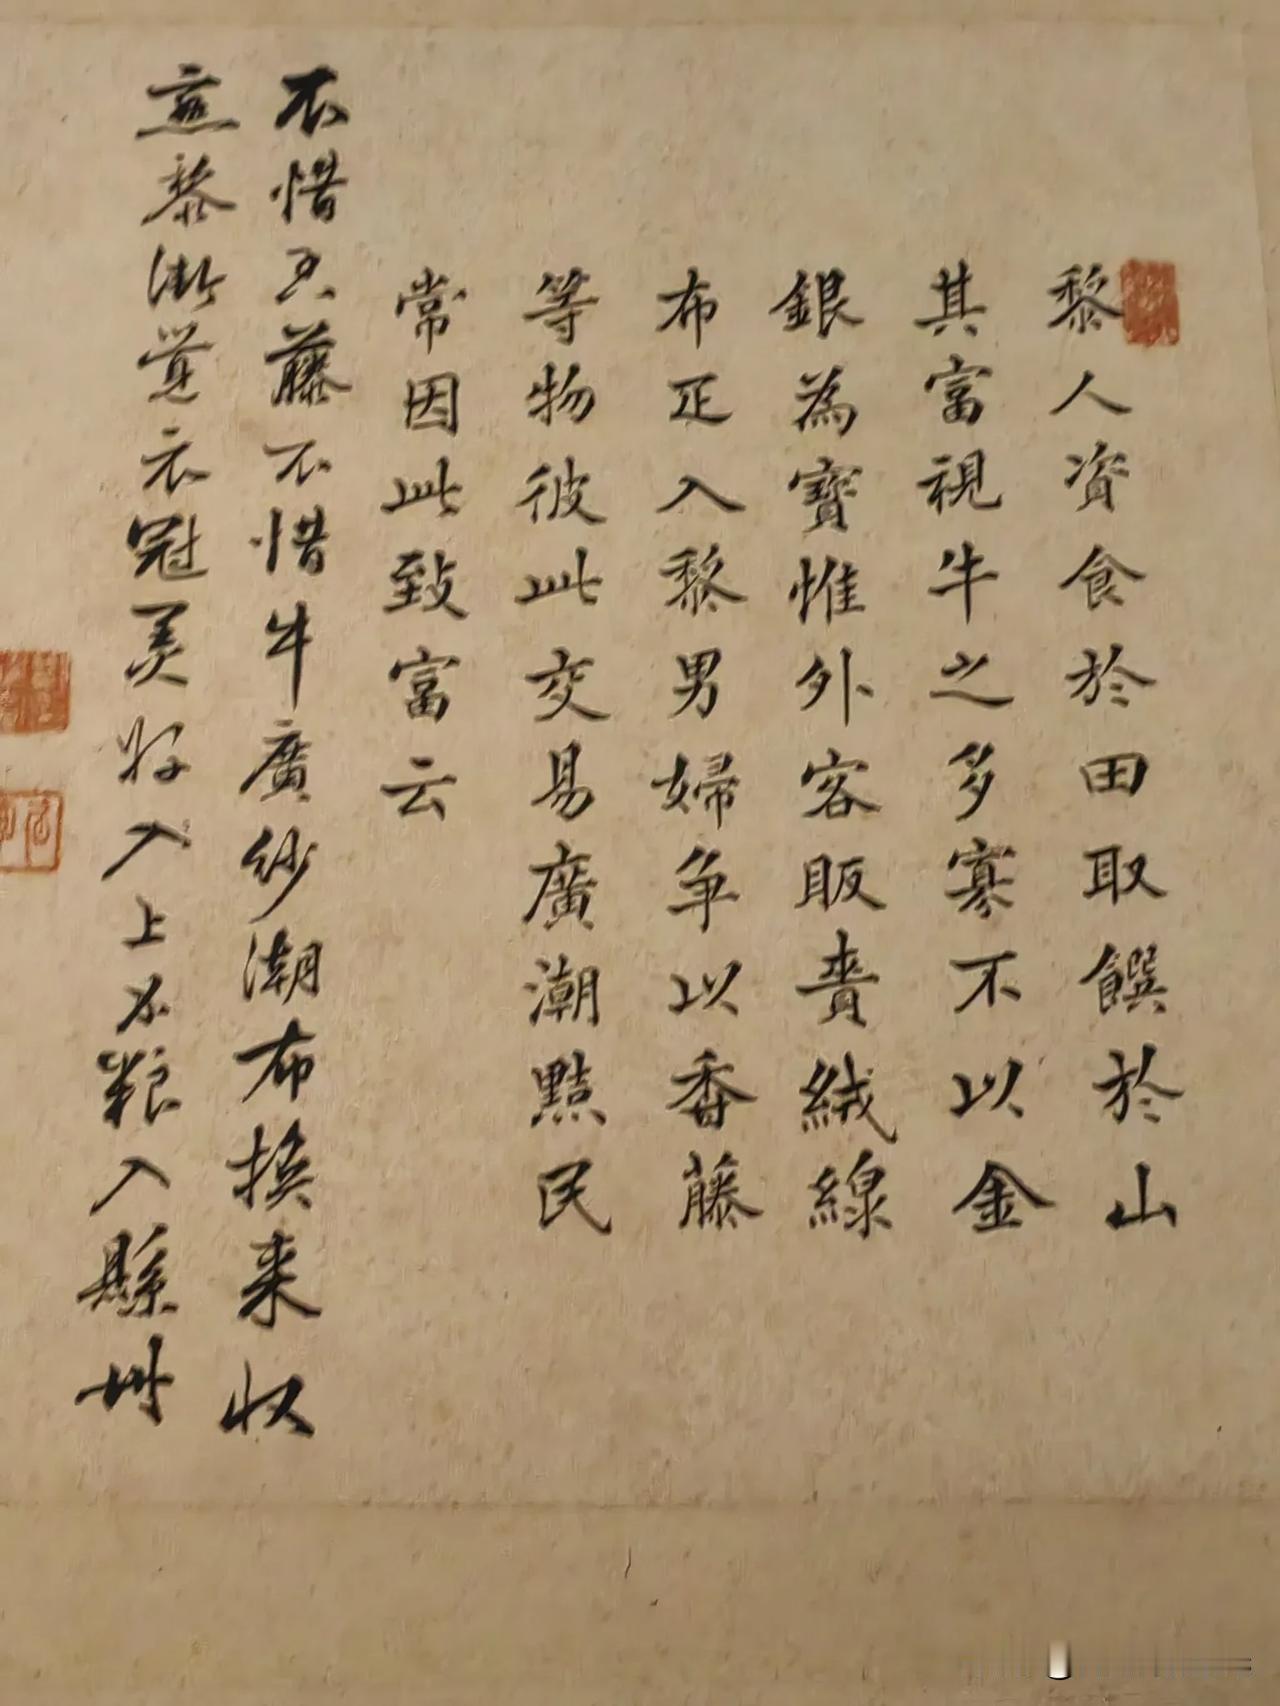 黎人資食於田取饌於山
其富視牛之多寡不以金
銀為寶惟外客販賫絨線
布疋入黎男婦争以香藤
等物彼此交易廣潮黠民
常因此致富云
不惜藤不惜牛廣紗潮布換来收
黎漸覺衣冠美入上粮入縣州